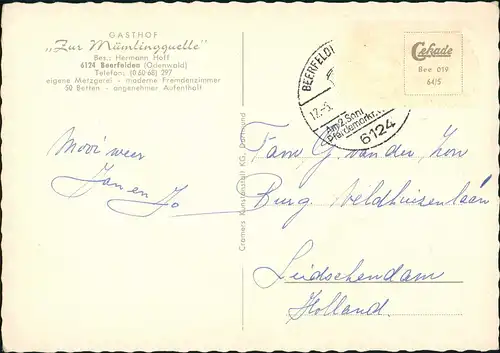 GASTHOF
„Zur Mümlingquelle"
Bes.: Hermann Hoff
6124 Beerfelden (Odenwald)
Telefon: (0 60 68) 297
eigene Metzgerei - moderne Fremdenzimmer
50 Betten - angenehmer Aufenthalt
BEERFELD
12.-5.
Am 2. Sonn
Pferdemarkt
6124
Cekade
Bee 019
64/5
Mooi weer
Jan en Jo
Cramers Kunstanstalt KG, Dortmund
Fam G van der Zon
Burg. Veldhuizenlaan
Leidschendam
Holland.